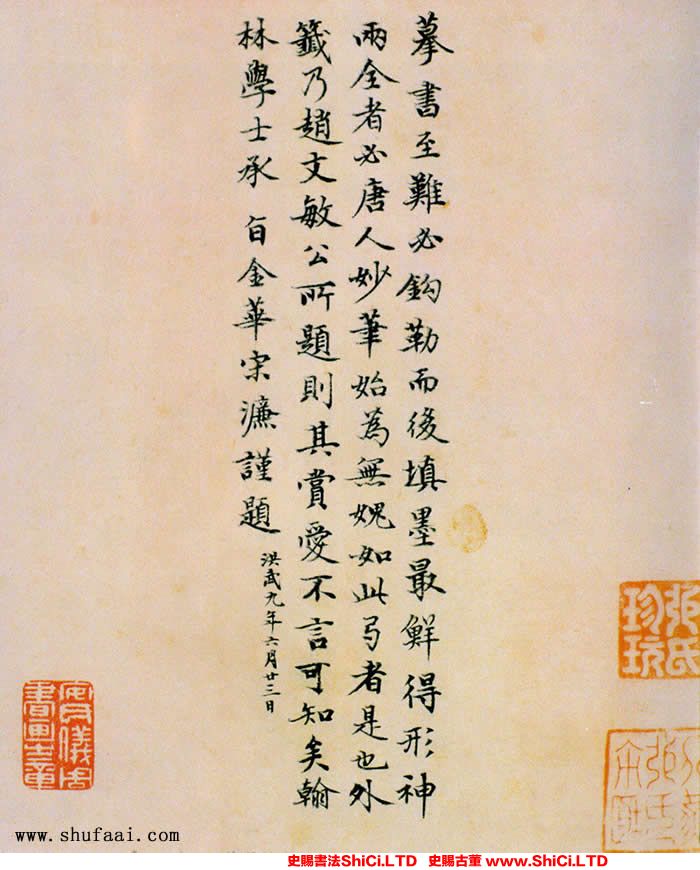 摹書至難必鈎勒而後填墨最鮮得形神
兩全者必唐人妙筆始為無媿如此弓者是也外
籤乃趙文敏公所題則其賞愛不言可知矣翰
林學士承 旨金華宋濂謹題
洪武九年六月廿三日
張氏
珍玩
安氏儀周
書畫之章
www.shufaai.com
史賜書法ShiCi.LTD 史賜古董 www.ShiCi.LTD